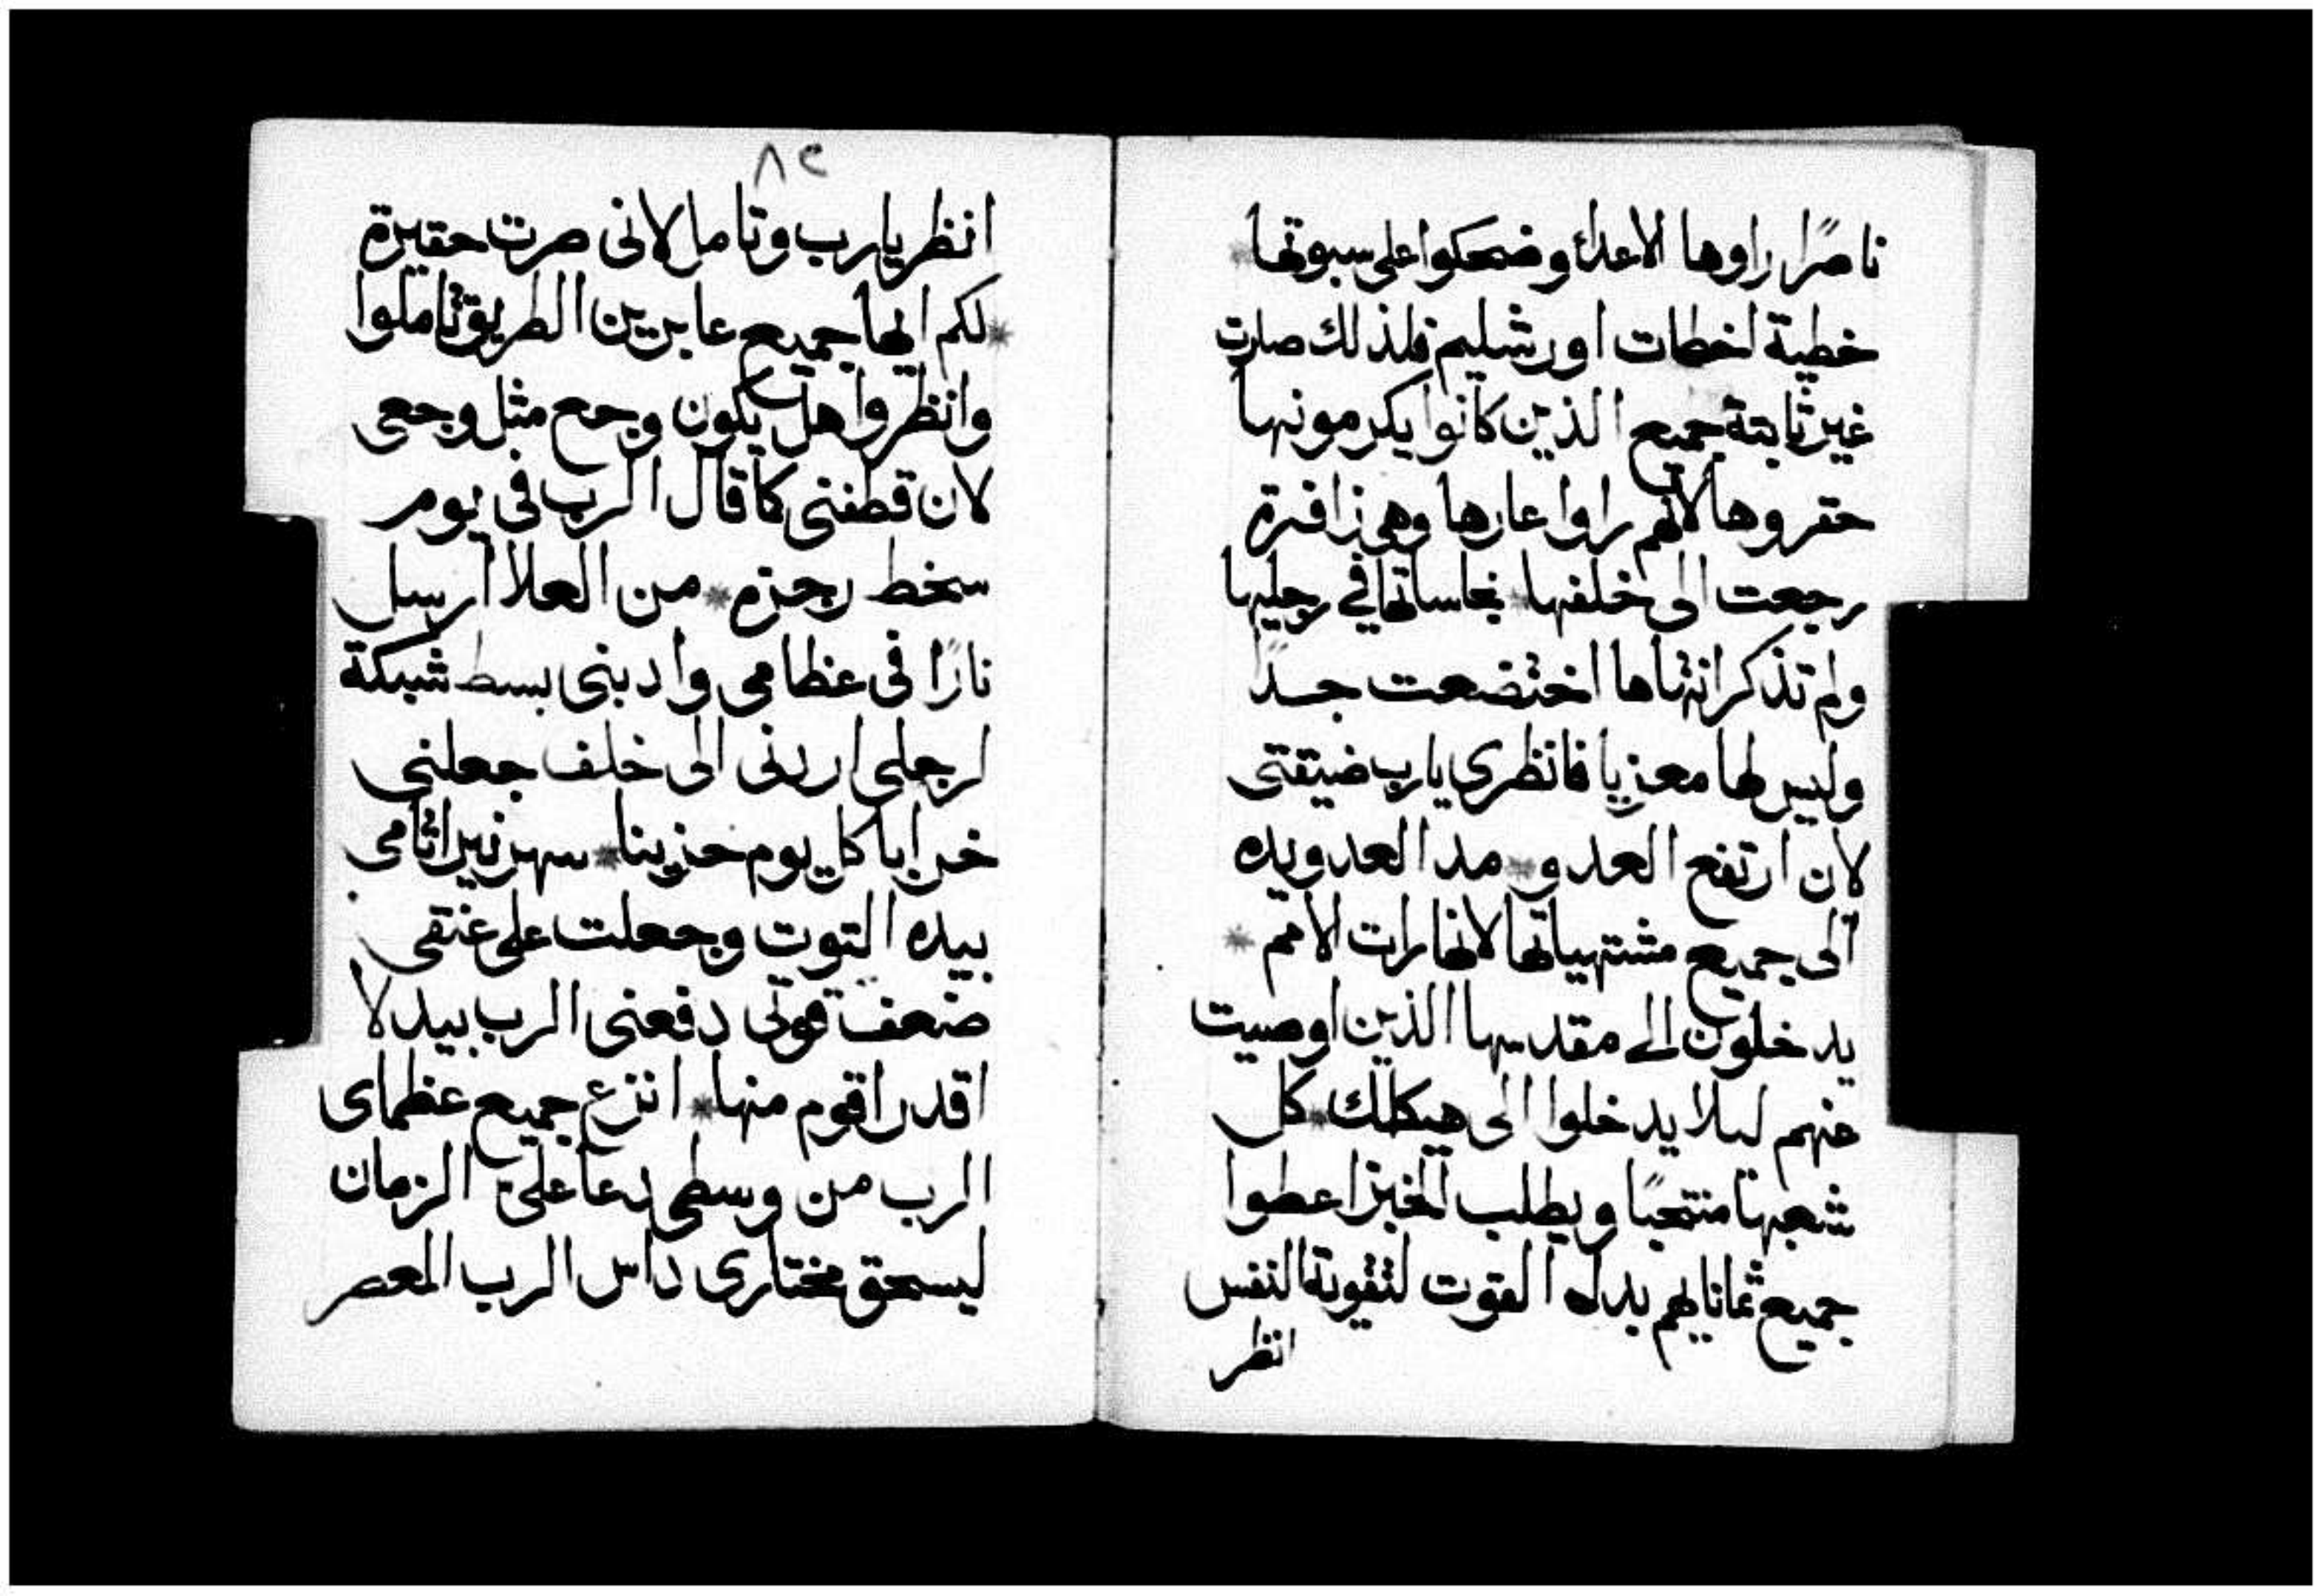 ناصرًا راوها الاعدائ وضحكوا على سبوتها *
خطية اخطات اورشليم فلذلك صارت
غير ثابتة جميع الذين كانوا يكرمونها
حقروها لانهم راوا عارها وهي زافرة
رجعت الى خلفها * نجاساتها في رجليها
ولم تذكر انتهاها اختضعت جــدًا
وليس لها معزيا فانظرى يارب ضيقتى
لان ارتفع العدو * مد العدو يده
الى جميع مشتهياتها لانها رات الامم *
يدخلون الى مقدسها الذين اوصيت
عنهم ليلا يدخلوا الى هيكلك * كل
شعبها منتحبًا ويطلب الخبز اعطوا
جميع ثمانايهم بدل القوت لتقوية النفس
انظر
٨٢
انظر يارب وتامل لانى صرت حقيرة
* لكم ايها جميع عابريين الطريق تاملوا
وانظروا هل يكون وجع مثل وجعى
لان قطفنى كما قال الرب فى يوم
سخط رجزه * من العلا ارسل
نارًا فى عظامى وادبنى بسط شبكة
لرجلى اردنى الى خلف جعلنى
خرابا كل يوم حزينا * سهر نير اثامى
بيده التوت وجعلت على عنقى
ضعف قوتى دفعنى الرب بيد لا
اقدر اقوم منها * انزع جميع عظماى
الرب من وسطى دعا على الزمان
ليسحق مختارى داس الرب المعصر